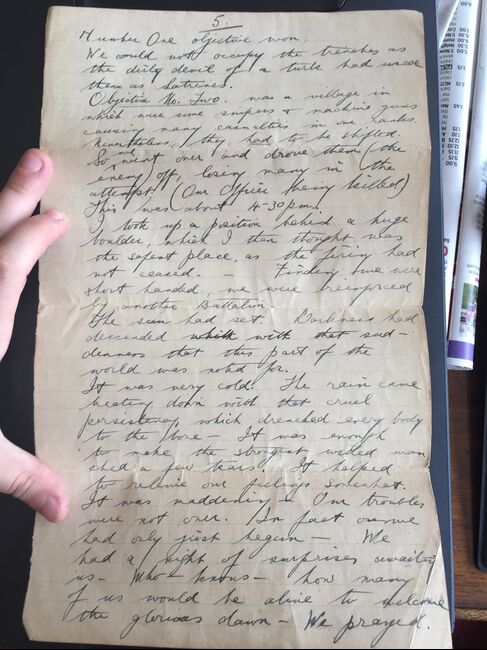 5.
Number One objective won.
We could not occupy the trenches as
the dirty devil of a turk had used
them as latrines.
Objective No. Two. was a village in
which were some snipers & machine guns
causing many casualties in our ranks.
Nevertheless, they had to be shifted.
So went over and drove them (the
enemy) off, losing many in the
attempt. (One Officer being killed)
This was about 4-30 p.m.
I took up a position behind a huge
boulder, which I then thought was
the safest place, as the firing had
not ceased. - Finding we were
short handed, we were reinforced
by another Battalion.
The sun had set. Darkness had
descended with that sud-
denness that this part of the
world was noted for.
It was very cold. The rain came
beating down with that cruel
persistency, which drenched every body
to the bone - It was enough
to make the strongest willed man
shed a few tears. It helped
to relieve our feelings somewhat.
It was maddening - Our troubles
were not over. In fact
had only just begun - We
had a night of surprises awaiting
us - Who knows - how many
of us would be alive to welcome
the glorious dawn - We prayed.